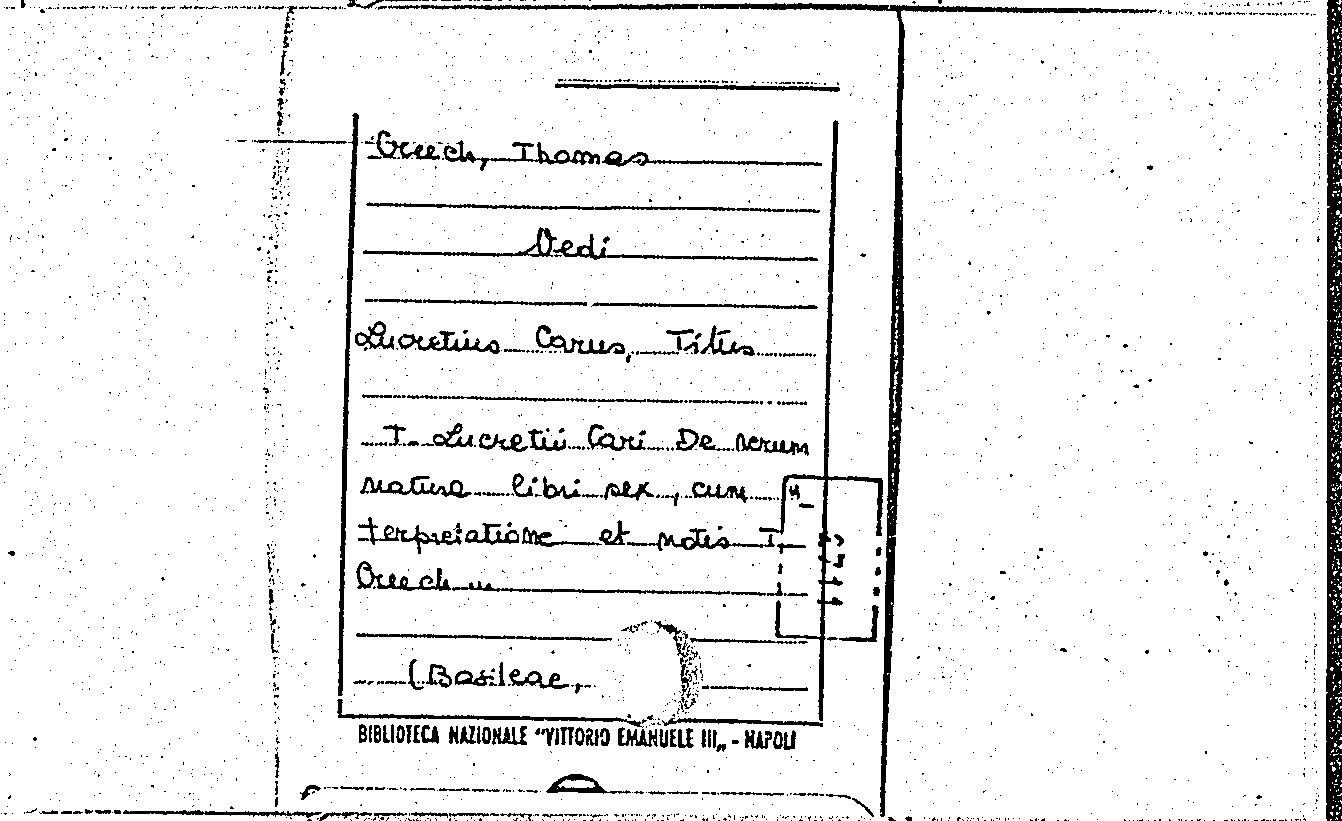 Creech, Thomas
Vedi
Lucretius Carus, Titus
T. Lucretii Cari De rerum
natura libri sex, cum
terpretatione et notis T.
Creech ...
(Basileae,
BIBLIOTECA NAZIONALE "VITTORIO EMANUELE III„ - NAPOLI